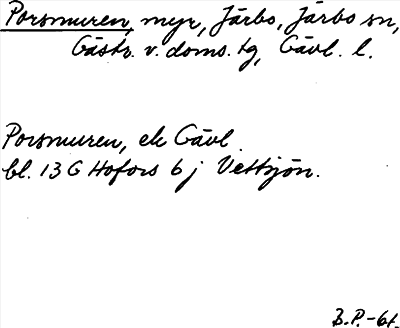 Porsmuren, myr, Järbo, Järbo sn,
Gästr. v. doms. tg, Gävl. l.
Porsmuren, ek Gävl.
bl. 13 G Hofors 6 j Vettsjön.
B.P.-61.